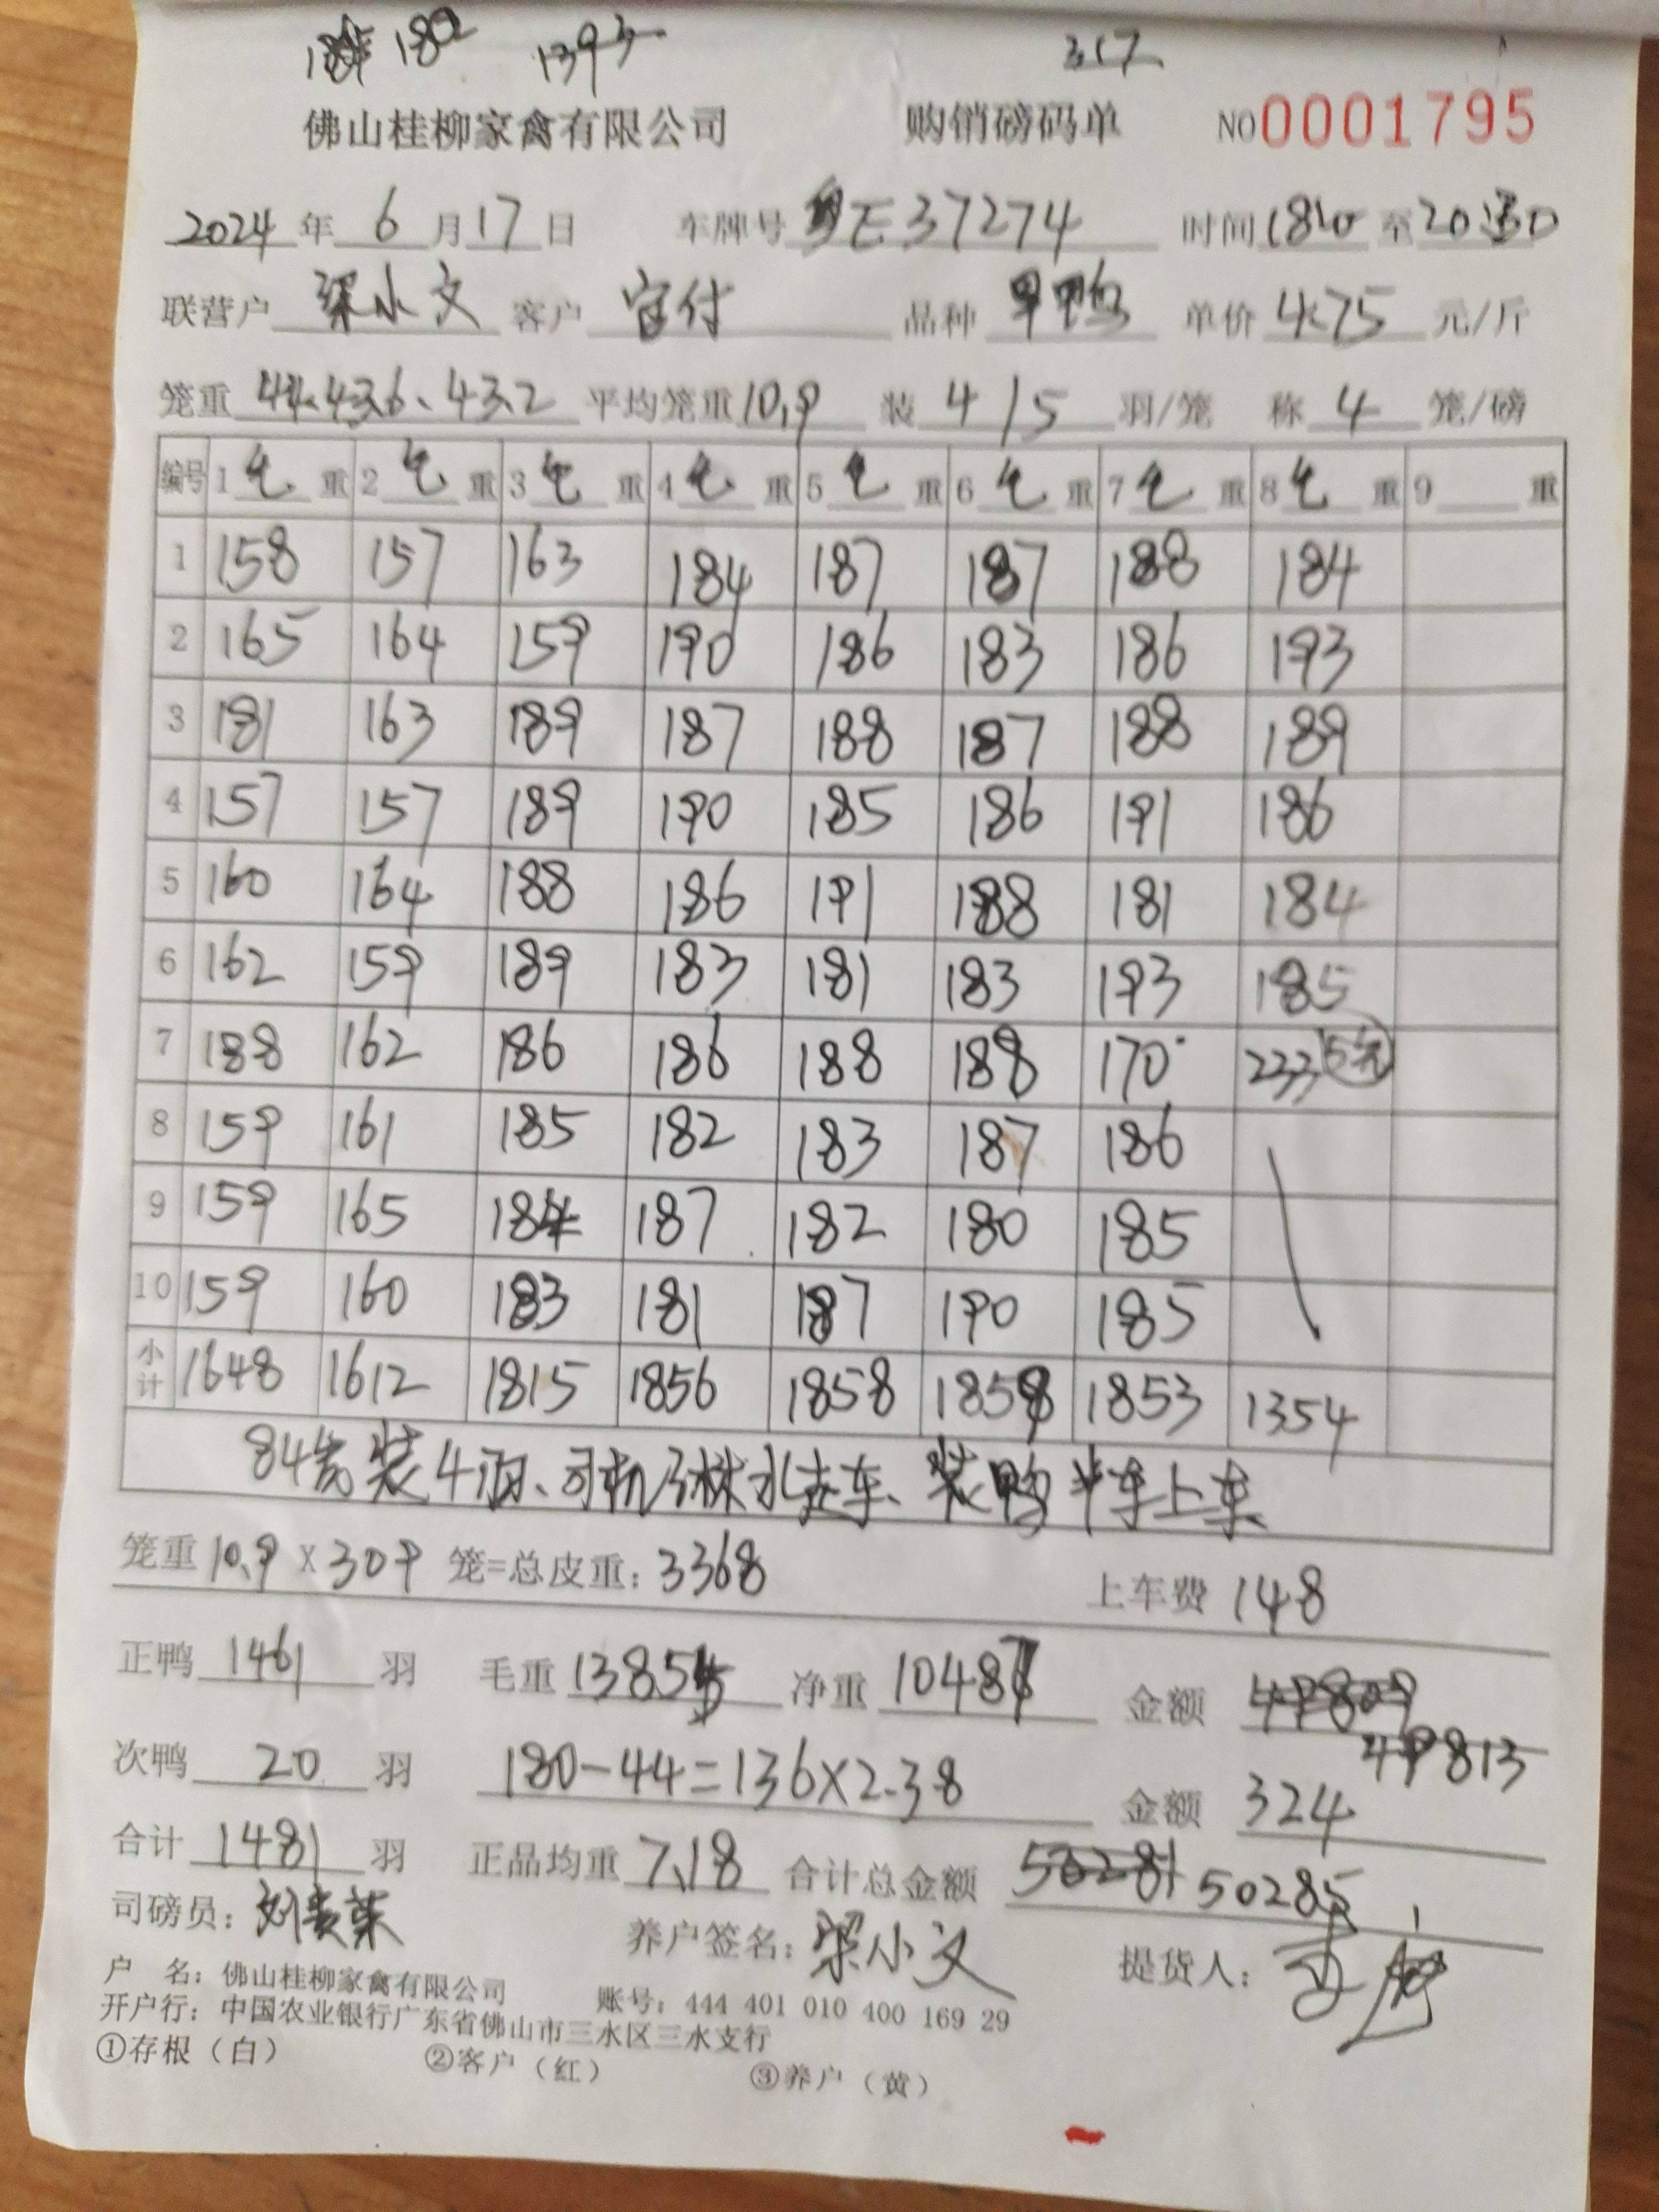 180 1393 317
佛山桂柳家禽有限公司 购销磅码单 NO0001795
2024年6月17日 车牌号 粤E37274 时间1810至20
联营户 梁小文 客户 宝付 品种 单价 4.75 元/斤
笼重 44.43.6、43.2 平均笼重10.9 装 4/5 羽/笼 称 4 笼/磅
编号 1毛重 2毛重 3毛重 4毛重 5毛重 6毛重 7毛重 8毛重 9 重
1 158 157 163 184 187 187 188 184
2 165 164 159 190 186 183 186 193
3 181 163 189 187 188 187 188 189
4 157 157 189 190 185 186 191 186
5 160 164 188 186 191 188 181 184
6 162 159 189 183 181 183 193 185
7 188 162 186 186 188 188 170 233
8 159 161 185 182 183 187 186
9 159 165 184 187 182 180 185
10 159 160 183 181 187 190 185
小计 1648 1612 1815 1856 1858 1859 1853 1354
84 装4 司机 淋水走车、装鸭半车上车
笼重10.9×309 笼=总皮重:3368 上车费 148
正鸭 1461 羽 毛重 13855 净重 10487 金额 49809
49813
次鸭 20 羽 180-44=136×2.38 金额 324
合计 1481 羽 正品均重 7.18 合计总金额 50281 50285
司磅员: 养户签名:梁小文 提货人:
户 名:佛山桂柳家禽有限公司 账号:444 401 010 400 169 29
开户行:中国农业银行广东省佛山市三水区三水支行
①存根(白) ②客户(红) ③养户(黄)